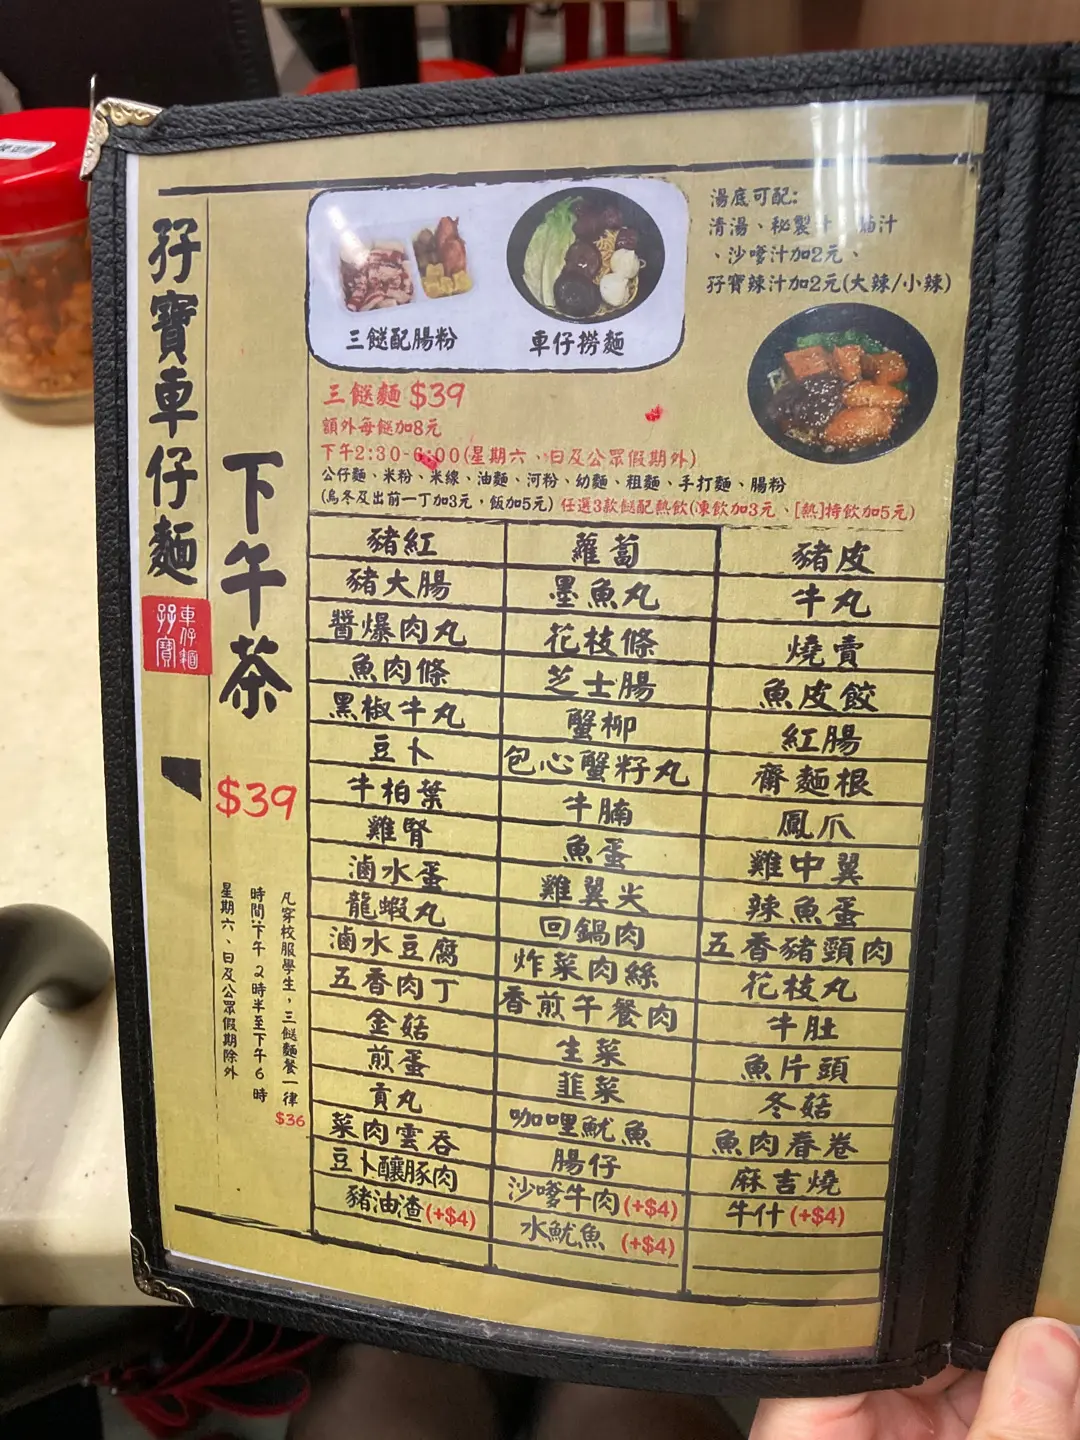 孖寶車仔麵
孖寶
車仔麵
下午茶
$39
凡穿校服學生，三餸麵餐一律
$36
時間:下午 2時半至下午6時
星期六、日及公眾假期除外
三餸配腸粉
車仔撈麵
湯底可配:
清湯、秘製汁 滷汁
、沙嗲汁加2元、
孖寶辣汁加2元(大辣/小辣)
三餸麵 $39
額外每餸加8元
下午2:30-6:00(星期六、日及公眾假期外)
公仔麵、米粉、米線、油麵、河粉、幼麵、粗麵、手打麵、腸粉
(烏冬及出前一丁加3元，飯加5元) 任選3款餸配熱飲(凍飲加3元、[熱]特飲加5元)
豬紅
豬大腸
醬爆肉丸
魚肉條
黑椒牛丸
豆卜
牛柏葉
雞腎
滷水蛋
龍蝦丸
滷水豆腐
五香肉丁
金菇
煎蛋
貢丸
菜肉雲吞
豆卜釀豚肉
豬油渣(+$4)
蘿蔔
墨魚丸
花枝條
芝士腸
蟹柳
包心蟹籽丸
牛腩
魚蛋
雞翼尖
回鍋肉
炸菜肉絲
香煎午餐肉
生菜
韮菜
咖哩魷魚
腸仔
沙嗲牛肉(+$4)
水魷魚 (+$4)
豬皮
牛丸
燒賣
魚皮餃
紅腸
齋麵根
鳳爪
雞中翼
辣魚蛋
五香豬頸肉
花枝丸
牛肚
魚片頭
冬菇
魚肉春卷
麻吉燒
牛什 (+$4)